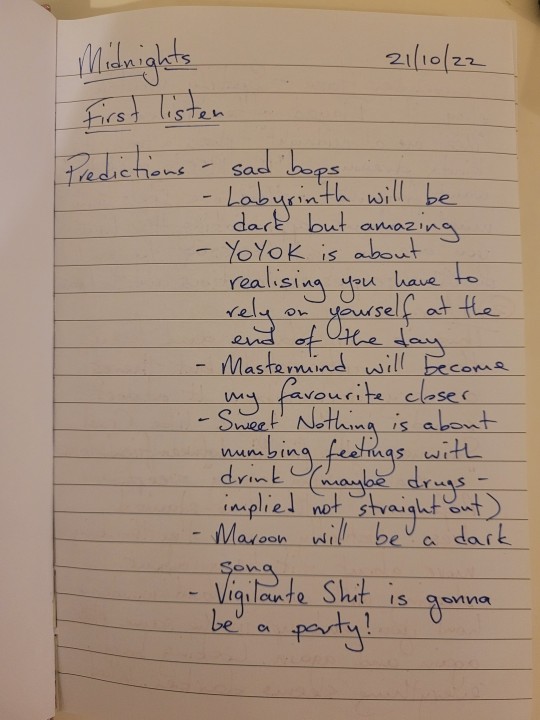 Midnights 21/10/22
First listen
Predictions - sad bops
- Labyrinth will be
dark but amazing
- YOYOK is about
realising you have to
rely on yourself at the
end of the day
- Mastermind will become
my favourite closer
- Sweet Nothing is about
numbing feelings with
drink (maybe drugs -
implied not straight out)
- Maroon will be a dark
song
- Vigilante Shit is gonna
be a party!